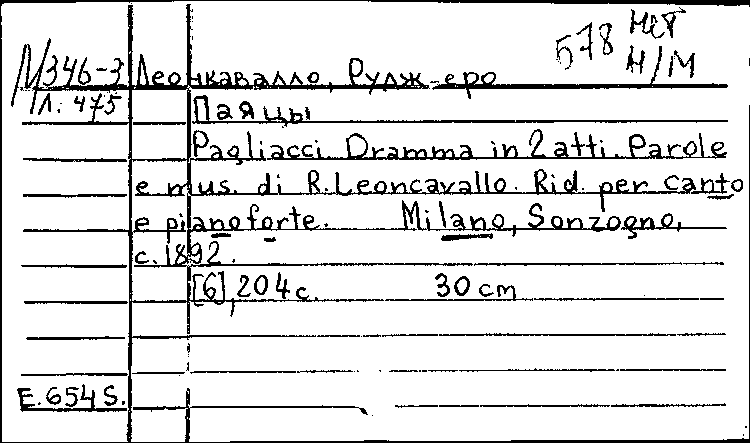 578 нет
Н/М
М346-3 Леонкавалло, Рудж-еро
Л. 475 Паяцы
Pagliacci. Dramma in 2 atti. Parole
e mus. di R. Leoncavallo. Rid. per canto
e pianoforte. Milano, Sonzogno,
c. 1892.
[6], 204 с. 30 cm
E. 654 S.